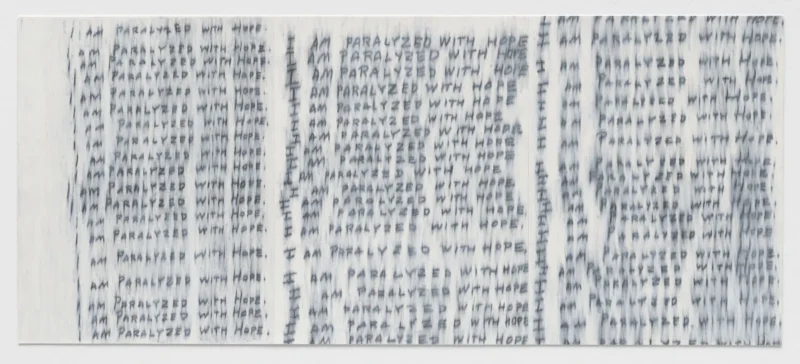 I AM PARALYZED WITH HOPE.
I AM PARALYZED WITH HOPE.
I AM PARALYZED WITH HOPE.
I AM PARALYZED WITH HOPE.
I AM PARALYZED WITH HOPE.
I AM PARALYZED WITH HOPE.
I AM PARALYZED WITH HOPE.
I AM PARALYZED WITH HOPE.
I AM PARALYZED WITH HOPE.
I AM PARALYZED WITH HOPE.
I AM PARALYZED WITH HOPE.
I AM PARALYZED WITH HOPE.
I AM PARALYZED WITH HOPE.
I AM PARALYZED WITH HOPE.
I AM PARALYZED WITH HOPE.
I AM PARALYZED WITH HOPE.
I AM PARALYZED WITH HOPE.
I AM PARALYZED WITH HOPE.
I AM PARALYZED WITH HOPE
I AM PARALYZED WITH HOPE
I AM PARALYZED WITH HOPE
I AM PARALYZED WITH HOPE
I AM PARALYZED WITH HOPE
I AM PARALYZED WITH HOPE
I AM PARALYZED WITH HOPE.
I AM PARALYZED WITH HOPE
I AM PARALYZED WITH HOPE
I AM PARALYZED WITH HOPE
I AM PARALYZED WITH HOPE
I AM PARALYZED WITH HOPE.
I AM PARALYZED WITH HOPE.
I AM PARALYZED WITH HOPE.
I AM PARALYZED WITH HOPE.
I AM PARALYZED WITH HOPE
I AM PARALYZED WITH HOPE
I AM PARALYZED WITH HOPE
I AM PARALYZED WITH HOPE
I AM PARALYZED WITH HOPE
I AM PARALYZED WITH HOPE.
I AM PARALYZED WITH HOPE.
I AM PARALYZED WITH HOPE.
I AM PARALYZED WITH HOPE.
I AM PARALYZED WITH HOPE.
I AM PARALYZED WITH HOPE.
I AM PARALYZED WITH HOPE.
I AM PARALYZED WITH HOPE.
I AM PARALYZED WITH HOPE.
I AM PARALYZED WITH HOPE.
I AM PARALYZED WITH HOPE.
I AM PARALYZED WITH HOPE.
I AM PARALYZED WITH HOPE.
I AM PARALYZED WITH HOPE.
I AM PARALYZED WITH HOPE.
I AM PARALYZED WITH HOPE.
I AM PARALYZED WITH HOPE.
I AM PARALYZED WITH HOPE.
I AM PARALYZED WITH HOPE.
I AM PARALYZED WITH HOPE.